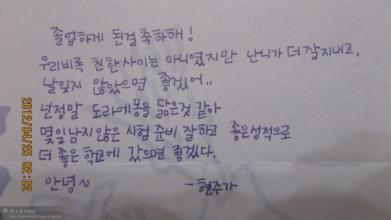 졸업하게 된걸 축하해!
우리비록 친한사이는 아니였지만 난니가 더잘지내고,
날잊지 않았으면 좋겠어..
넌정말 도라에몽을 닮은것 같아
몇일남지않은 시험준비 잘하고 좋은성적으로
더 좋은 학교에 갔으면 좋겠다.
안녕~ -현주가
2012/04/25 02:02